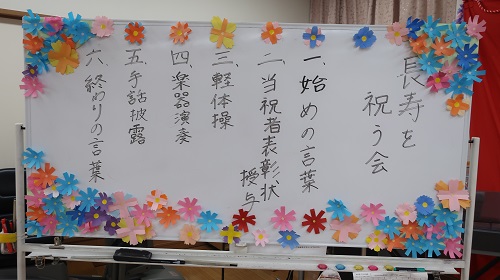 長寿を
祝う会
一、始めの言葉
二、当祝者表彰状
授与
三、軽体操
四、楽器演奏
五、手話披露
六、終わりの言葉